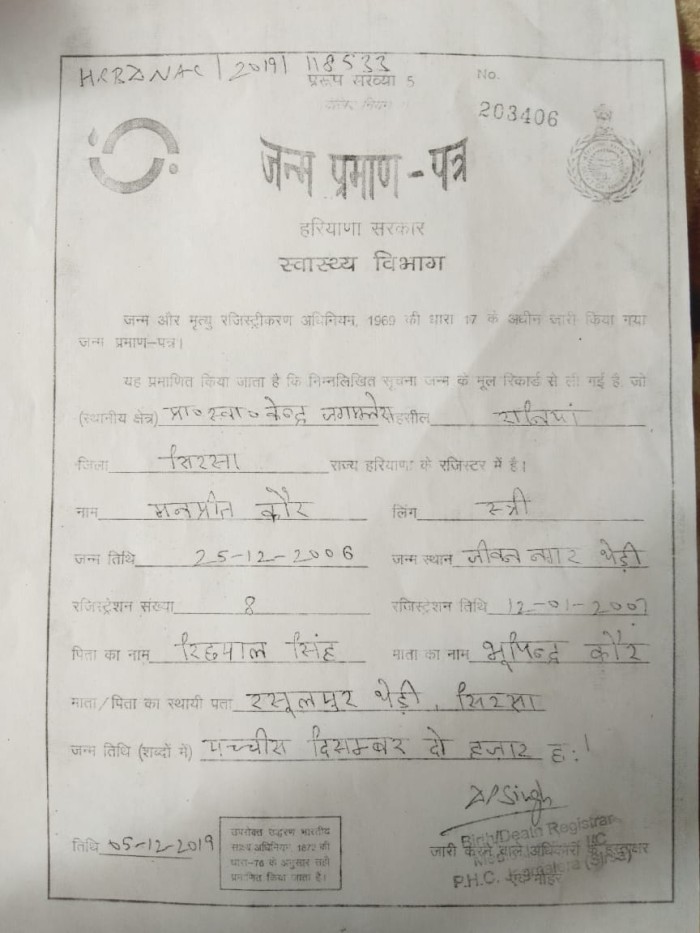 HRBDNAC/2019/118533
प्ररूप संख्या 5
No.
203406
जन्म प्रमाण-पत्र
हरियाणा सरकार
स्वास्थ्य विभाग
जन्म और मृत्यु रजिस्ट्रीकरण अधिनियम, 1969 की धारा 17 के अधीन जारी किया गया
जन्म प्रमाण-पत्र।
यह प्रमाणित किया जाता है कि निम्नलिखित सूचना जन्म के मूल रिकार्ड से ली गई है जो
(स्थानीय क्षेत्र) प्रा०स्वा० केन्द्र तहसील रानियां
जिला सिरसा राज्य हरियाणा के रजिस्टर में है।
नाम मनप्रीत कौर लिंग स्त्री
जन्म तिथि 25-12-2006 जन्म स्थान जीवन नगर थेड़ी
रजिस्ट्रेशन संख्या 8 रजिस्ट्रेशन तिथि 12-01-2007
पिता का नाम रिछपाल सिंह माता का नाम भूपिन्द्र कौर
माता/पिता का स्थायी पता रसूलपुर थेड़ी, सिरसा
जन्म तिथि (शब्दों में) पच्चीस दिसम्बर दो हजार छ:।
तिथि 05-12-2019
उपरोक्त उद्धरण भारतीय
साक्ष्य अधिनियम, 1872 की
धारा-76 के अनुसार सही
प्रमाणित किया जाता है।
Singh
Birth/Death Registrar
जारी करने वाले अधिकारी के हस्ताक्षर
P.H.C.